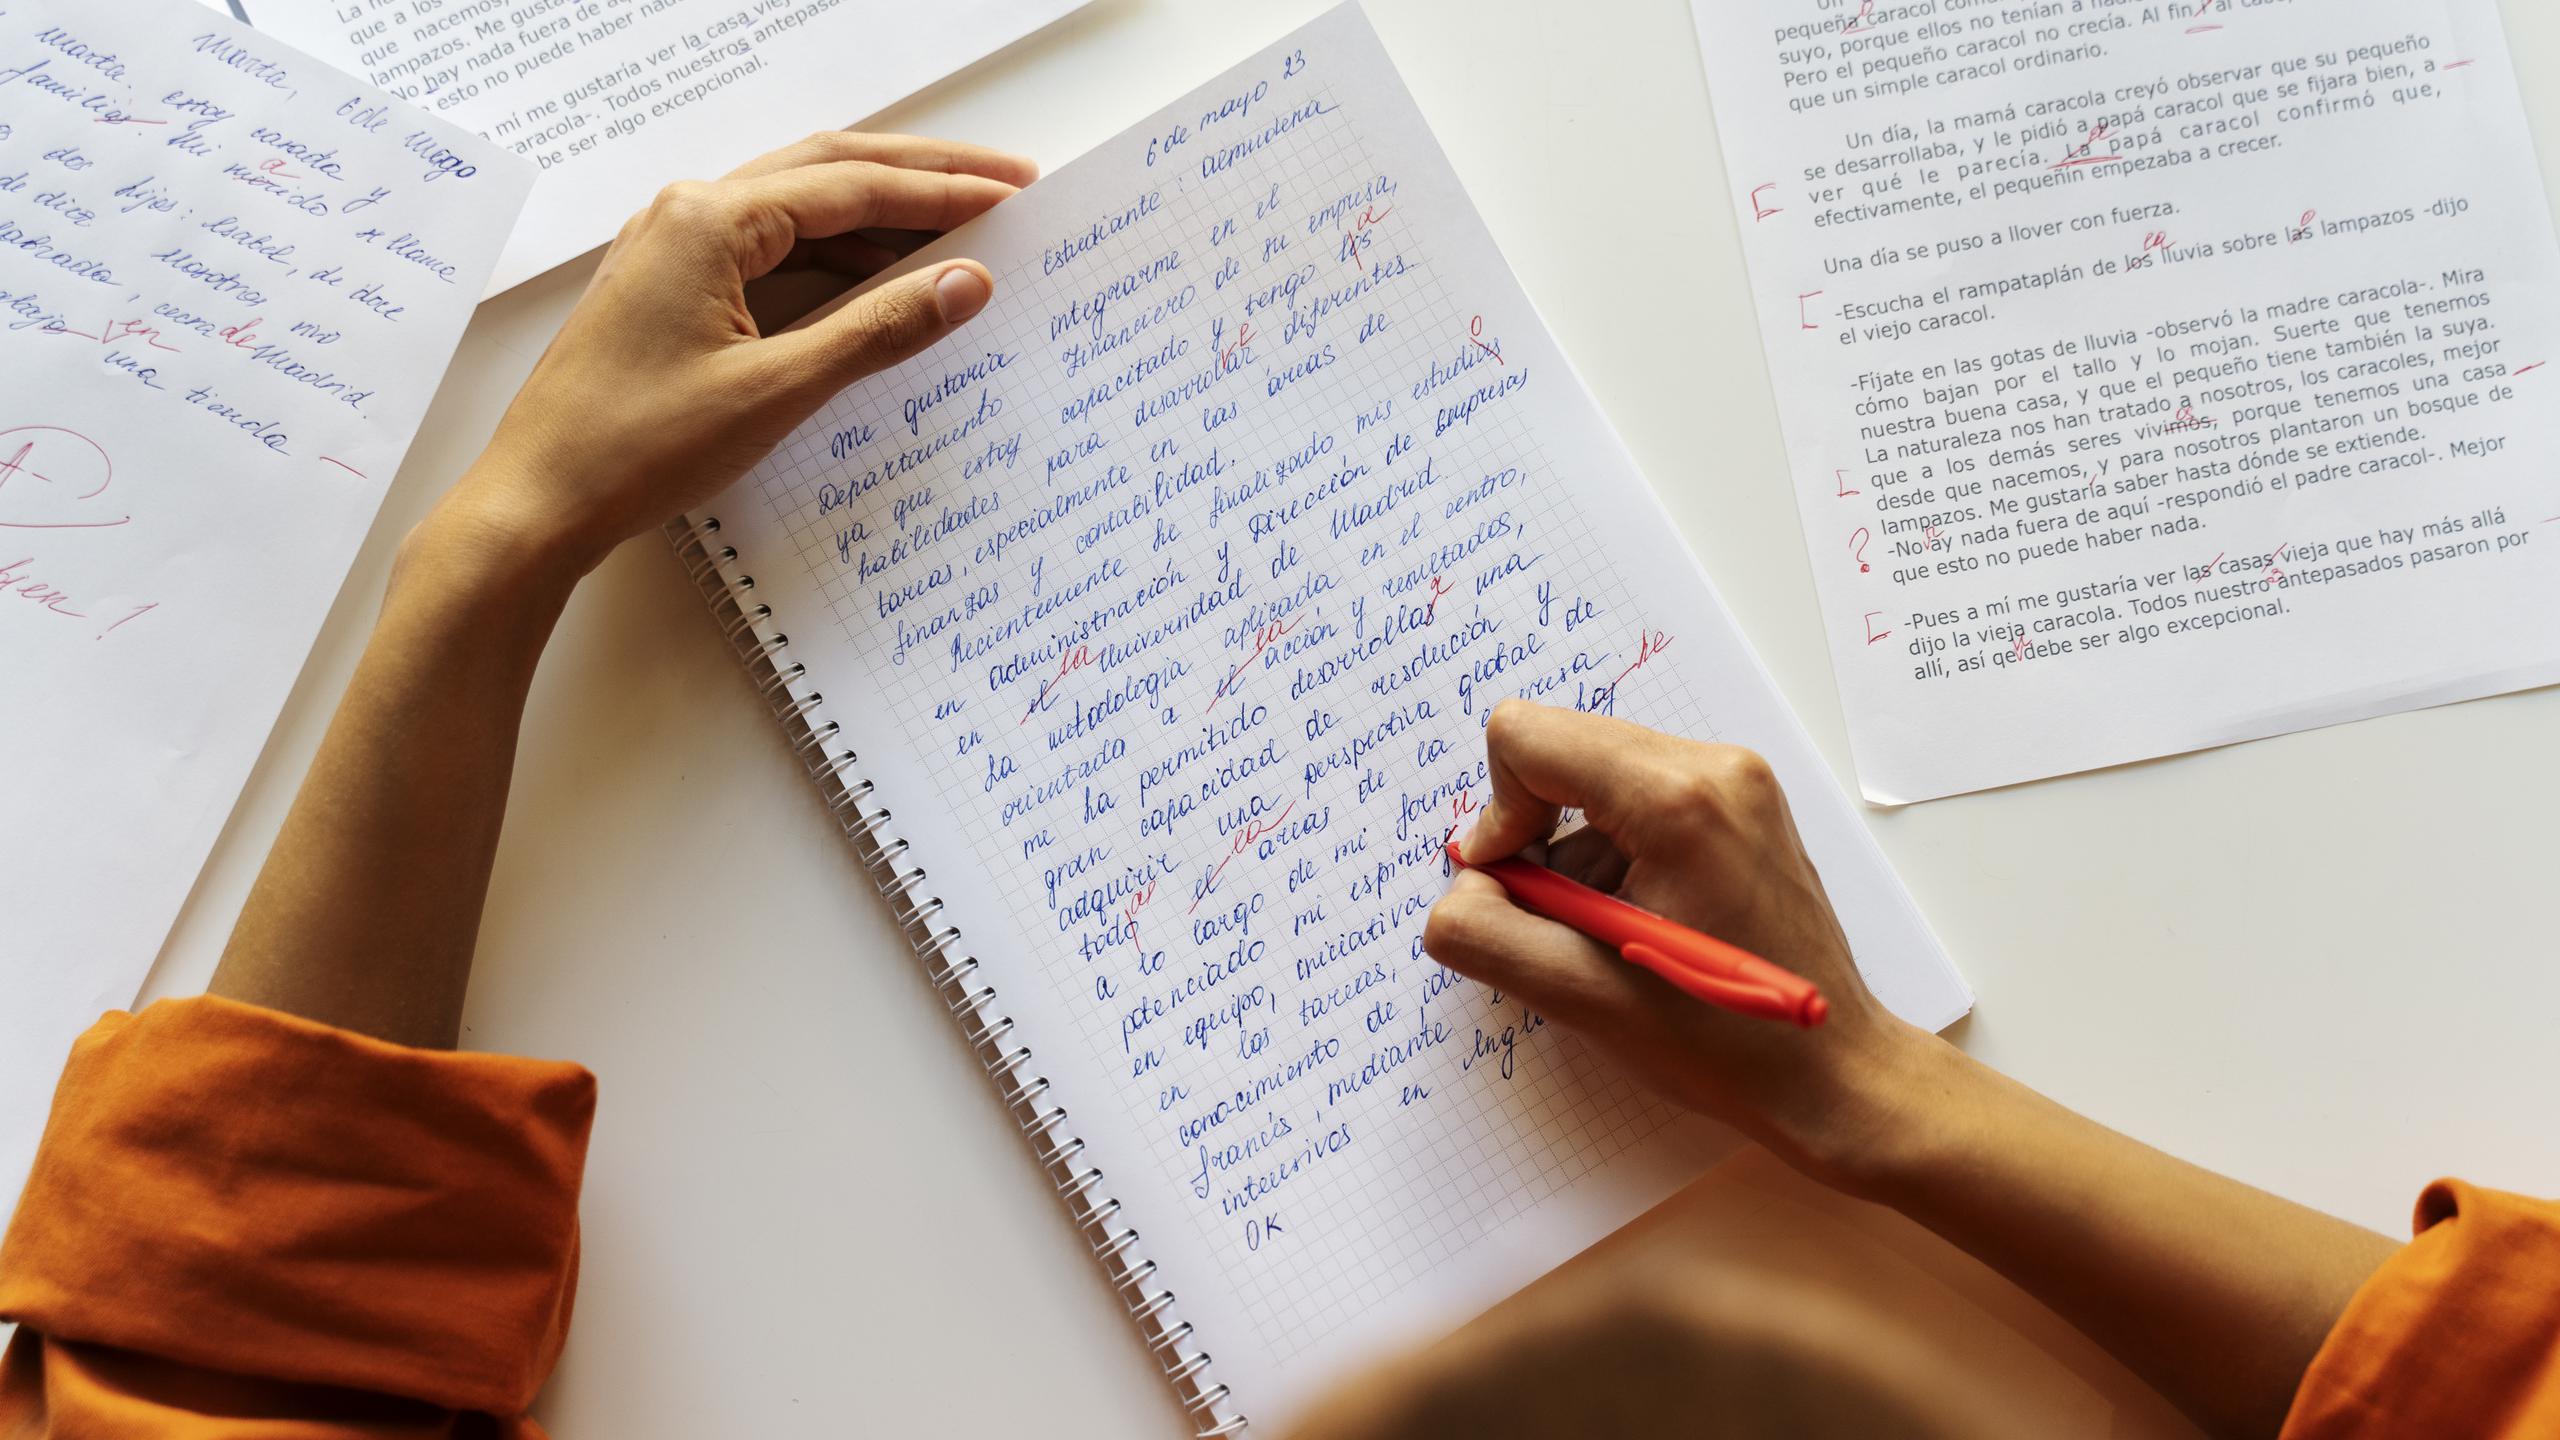 marta, 6 de mayo
marta. estoy casada y
familias. Mi morido se llama
dos hijos: Isabel, de doce
de diez Nosotros vivo
cerca de Madrid.
en una tienda
A-
bien!
que a los
que nacemos,
lampazos. Me gusta
No hay nada fuera de
esto no puede haber nad
a mí me gustaría ver la casa viej
caracola-. Todos nuestros antepasa
be ser algo excepcional.
6 de mayo 23
Estudiante: Almudena
Me gustaria integrarme en el
Departamento Financiero de su empresa,
ya que estoy capacitado y tengo los a
habilidades para desarrollar diferentes
tareas, especialmente en las áreas de
finanzas y contabilidad.
Recientemente he finalizado mis estudias o
en administración y Dirección de Empresas
en el la Universidad de Madrid.
La metodologia aplicada en el centro,
orientada a el la acción y resultados,
me ha permitido desarrollas r una
gran capacidad de resolución y
adquirir una perspectiva global de
todo as el la áreas de la empresa.
a lo largo de mi formac hay he
potenciado mi espiritu
en equipo, iniciativa
en las tareas, a
conocimiento de idi
francés, mediante
intensivos en Ingl
OK
pequeña o caracol
suyo, porque ellos no tenían a
Pero el pequeño caracol no crecía. Al fin y al
que un simple caracol ordinario.
Un día, la mamá caracola creyó observar que su pequeño
se desarrollaba, y le pidió a papá caracol que se fijara bien, a
ver qué le parecía. La papá caracol confirmó que,
efectivamente, el pequeñín empezaba a crecer.
Una día se puso a llover con fuerza.
-Escucha el rampataplán de los la lluvia sobre las o lampazos -dijo
el viejo caracol.
-Fíjate en las gotas de lluvia -observó la madre caracola-. Mira
cómo bajan por el tallo y lo mojan. Suerte que tenemos
nuestra buena casa, y que el pequeño tiene también la suya.
La naturaleza nos han tratado a nosotros, los caracoles, mejor
que a los demás seres vivimos, os porque tenemos una casa
desde que nacemos, y para nosotros plantaron un bosque de
lampazos. Me gustaría saber hasta dónde se extiende.
? -No ay nada fuera de aquí -respondió el padre caracol-. Mejor
que esto no puede haber nada.
-Pues a mí me gustaría ver las casas vieja que hay más allá
dijo la vieja caracola. Todos nuestro s antepasados pasaron por
allí, así qe u debe ser algo excepcional.